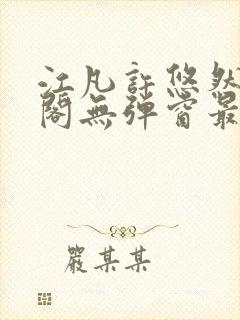 江凡許悠然
閣無彈窗最
嚴某某